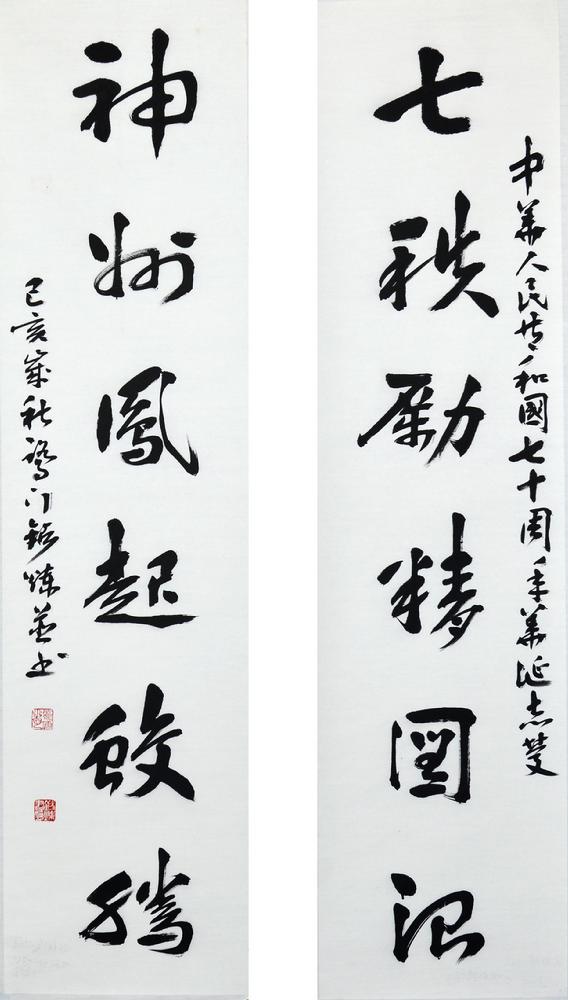 中華人民共和國七十周年華誕志慶
七秩勵精圖治
神州鳳起蛟騰
己亥歲秋鷺门煉並书